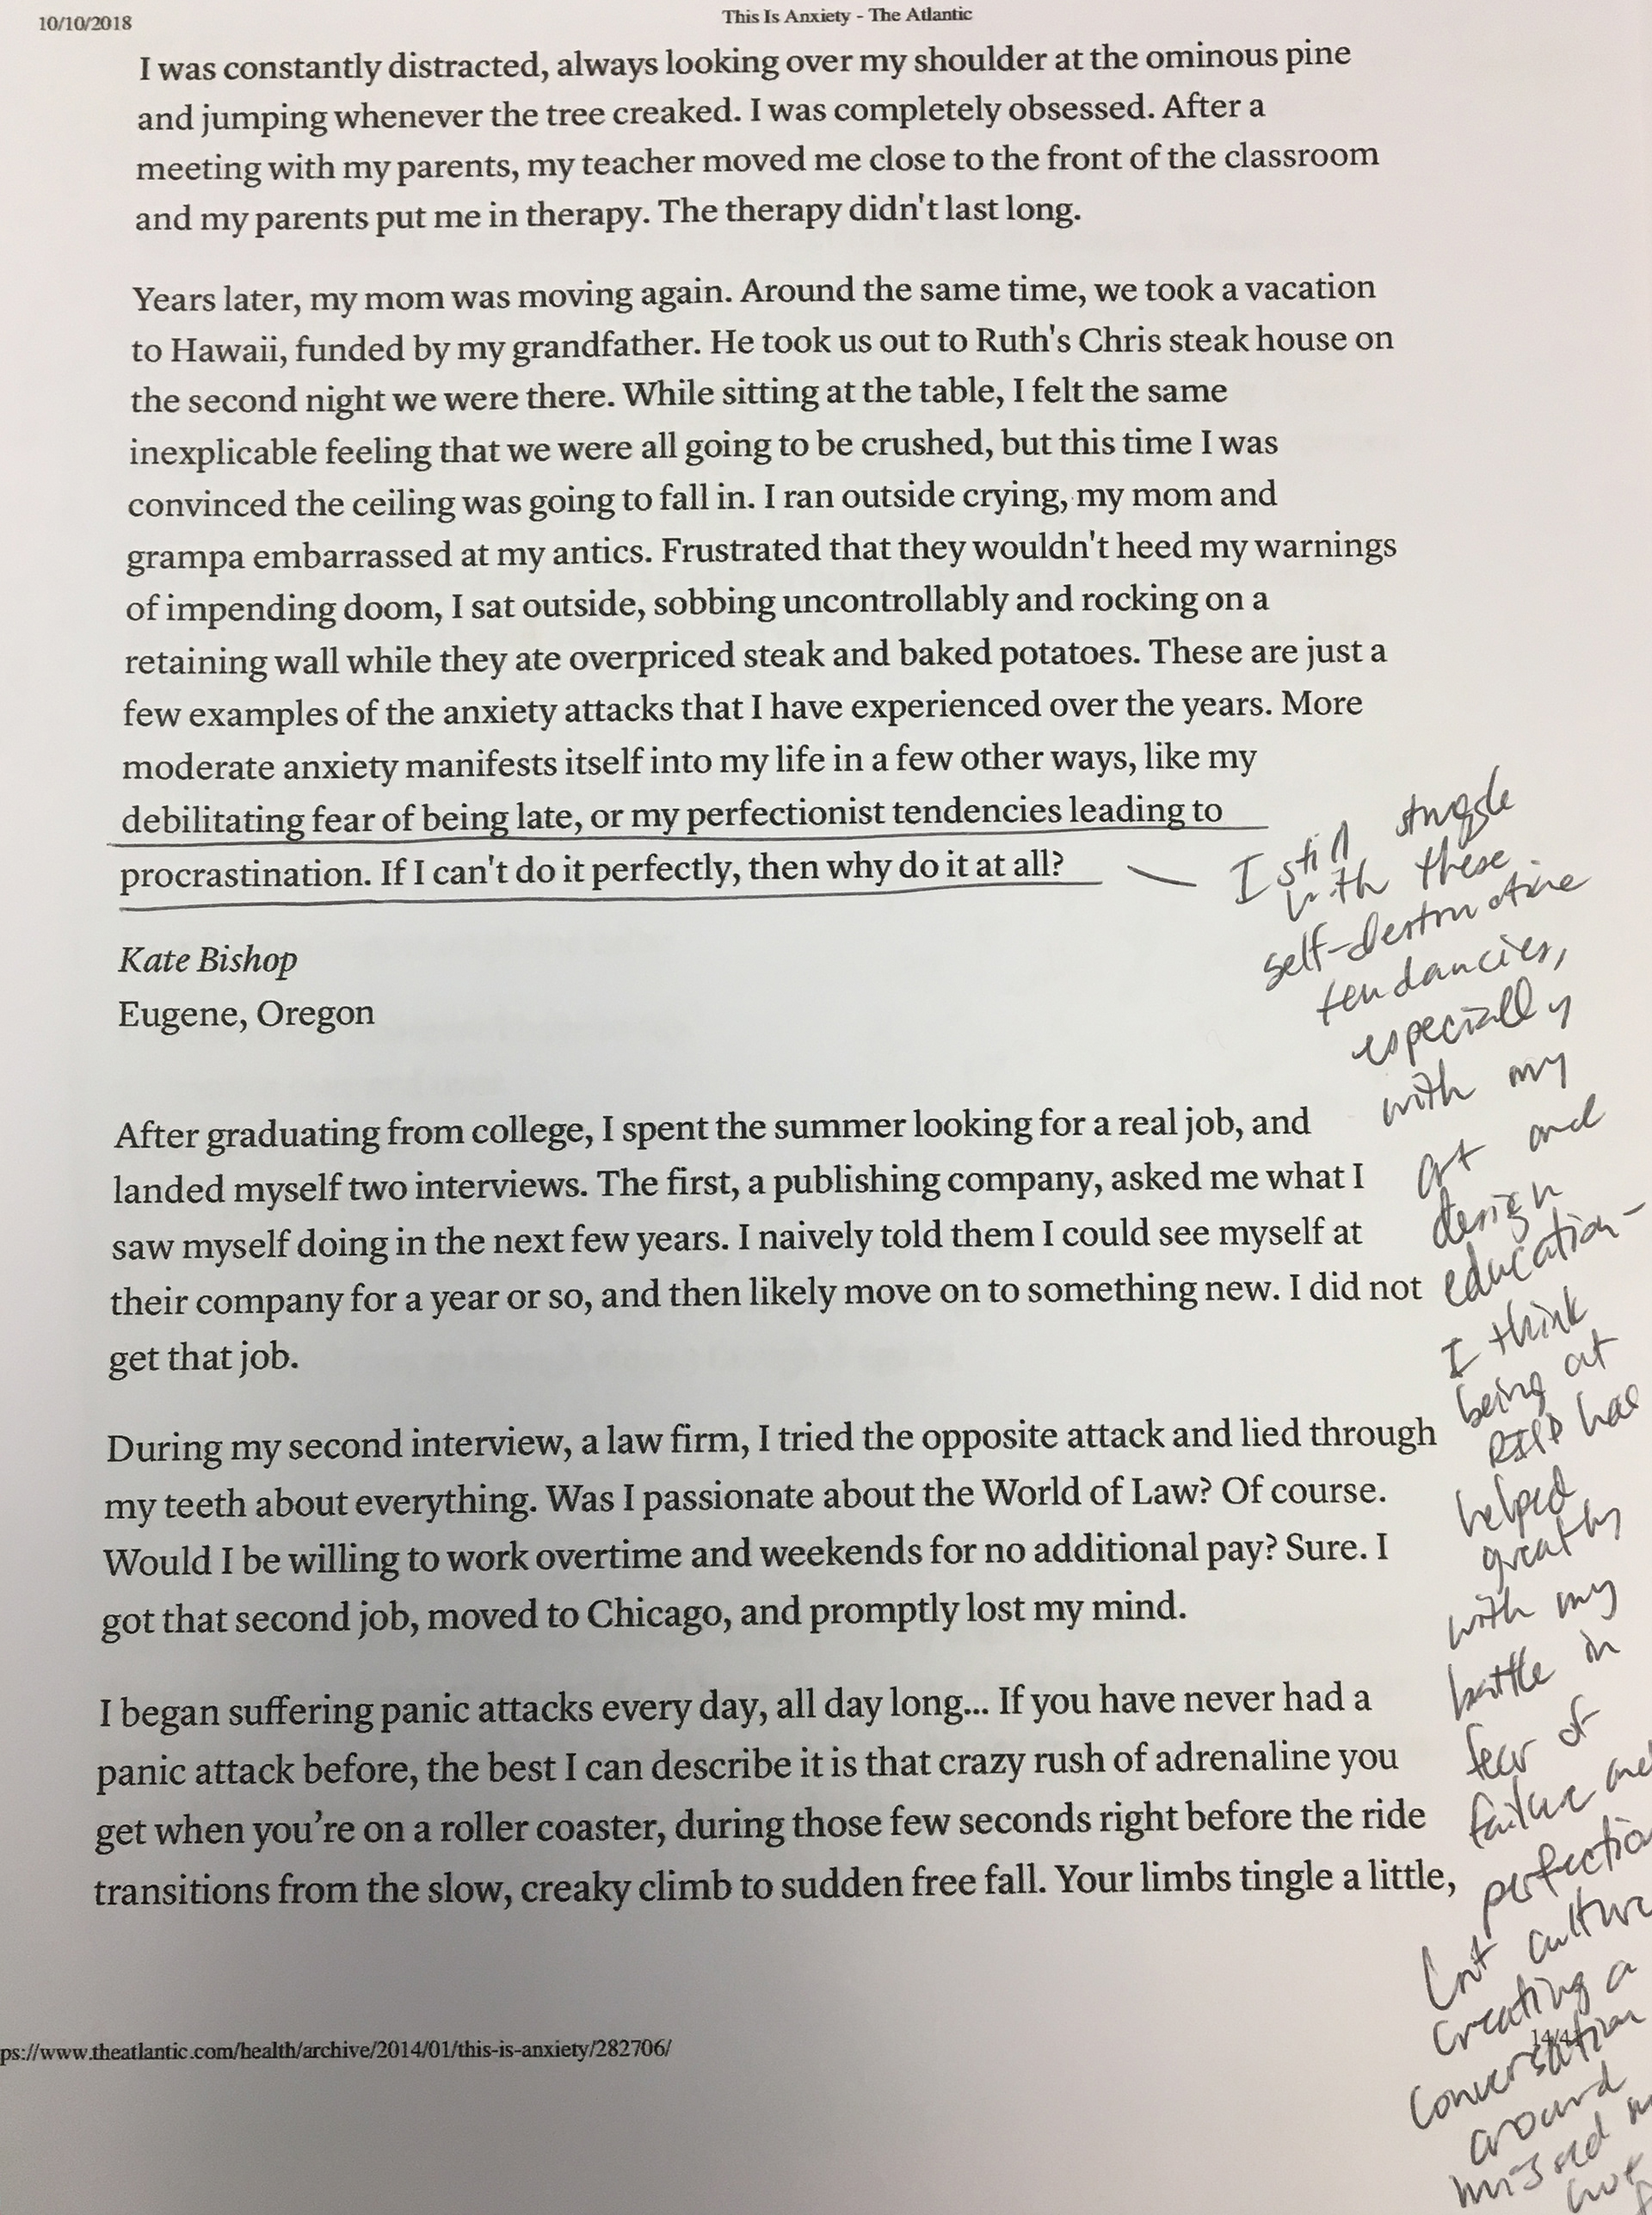 10/10/2018
This Is Anxiety - The Atlantic
I was constantly distracted, always looking over my shoulder at the ominous pine
and jumping whenever the tree creaked. I was completely obsessed. After a
meeting with my parents, my teacher moved me close to the front of the classroom
and my parents put me in therapy. The therapy didn't last long.
Years later, my mom was moving again. Around the same time, we took a vacation
to Hawaii, funded by my grandfather. He took us out to Ruth's Chris steak house on
the second night we were there. While sitting at the table, I felt the same
inexplicable feeling that we were all going to be crushed, but this time I was
convinced the ceiling was going to fall in. I ran outside crying, my mom and
grampa embarrassed at my antics. Frustrated that they wouldn't heed my warnings
of impending doom, I sat outside, sobbing uncontrollably and rocking on a
retaining wall while they ate overpriced steak and baked potatoes. These are just a
few examples of the anxiety attacks that I have experienced over the years. More
moderate anxiety manifests itself into my life in a few other ways, like my
debilitating fear of being late, or my perfectionist tendencies leading to
procrastination. If I can't do it perfectly, then why do it at all?
Kate Bishop
Eugene, Oregon
After graduating from college, I spent the summer looking for a real job, and
landed myself two interviews. The first, a publishing company, asked me what I
saw myself doing in the next few years. I naively told them I could see myself at
their company for a year or so, and then likely move on to something new. I did not
get that job.
During my second interview, a law firm, I tried the opposite attack and lied through
my teeth about everything. Was I passionate about the World of Law? Of course.
Would I be willing to work overtime and weekends for no additional pay? Sure. I
got that second job, moved to Chicago, and promptly lost my mind.
I began suffering panic attacks every day, all day long... If you have never had a
panic attack before, the best I can describe it is that crazy rush of adrenaline you
get when you're on a roller coaster, during those few seconds right before the ride
transitions from the slow, creaky climb to sudden free fall. Your limbs tingle a little,
I still struggle
with these
self-destructive
tendancies,
especially
with my
art and
design
education-
I think
being at
RISD has
helped
greatly
with my
battle in
fear of
failure and
perfection
culture
creating a
conversation
around
ps://www.theatlantic.com/health/archive/2014/01/this-is-anxiety/282706/